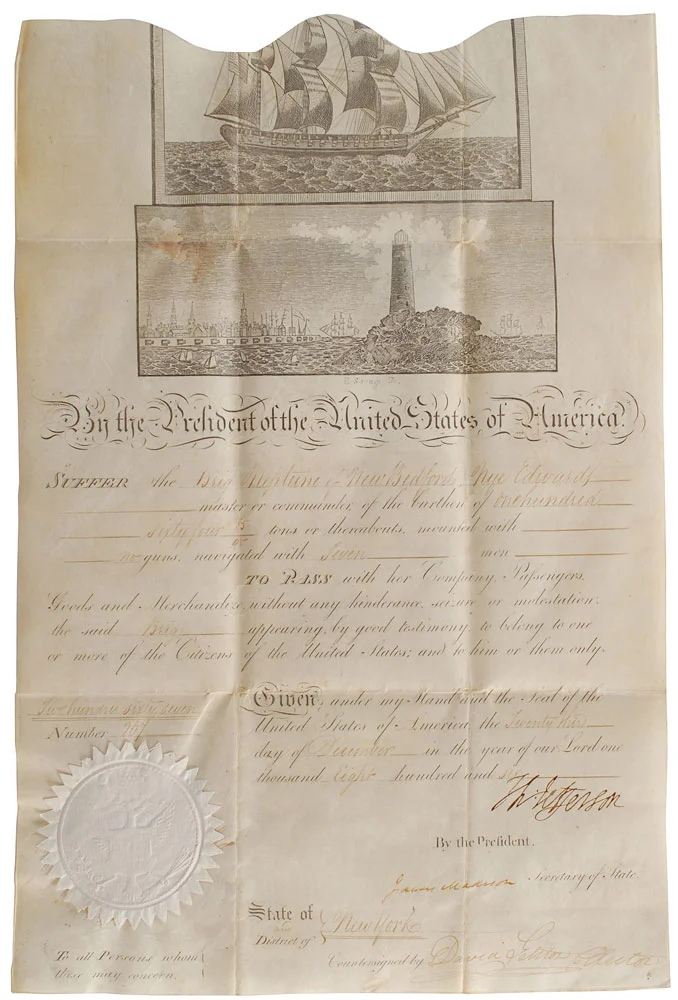 By the President of the United States of America.
SUFFER the Brig Neptune of New Bedford Nye Edwards
master or commander of the burthen of one hundred
sixty four tons or thereabouts, mounted with
no guns, navigated with Seven men
TO PASS with her Company, Passengers,
Goods and Merchandize, without any hinderance, seizure, or molestation:
the said Brig appearing, by good testimony, to belong to one
or more of the Citizens of the United States; and to him or them only.
Given, under my Hand and the Seal of the
United States of America, the
day of December in the year of our Lord one
thousand Eight hundred and
Two hundred sixty seven
Number 267
Th Jefferson
By the President.
James Madison Secretary of State.
State of
District of New York
Countersigned by David
To all Persons whom
these may concern.